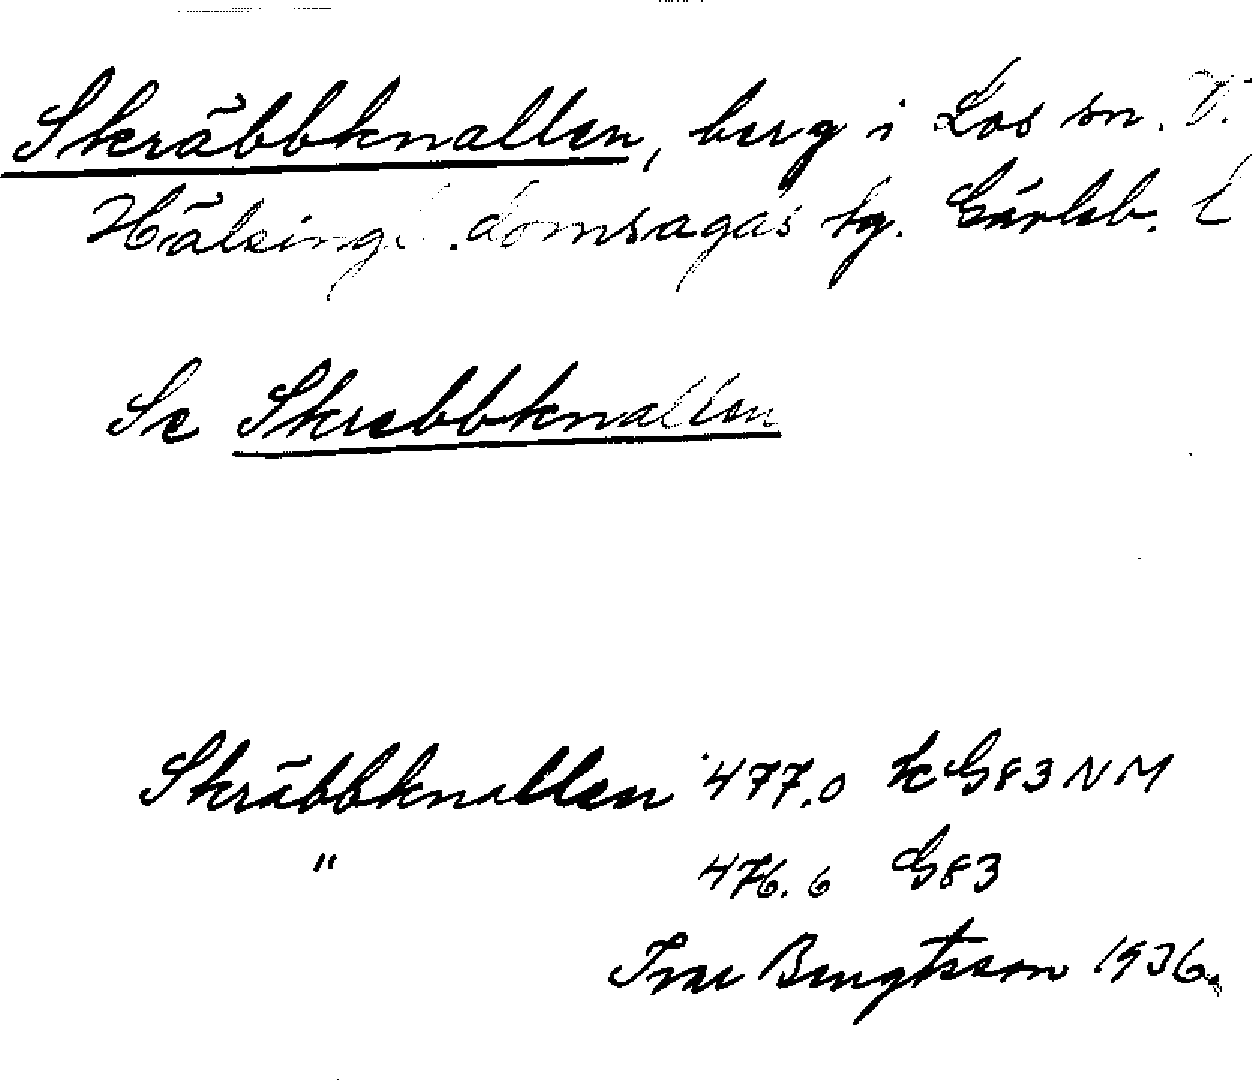 Skräbbknallen, berg i Los sn. V.
Hälsingl. domsagas tg. Gävleb. L
Se Skrebbknallen
Skräbbknallen 477.0 k G83 NM
" 476.6 G83
Bengtsson 1936.